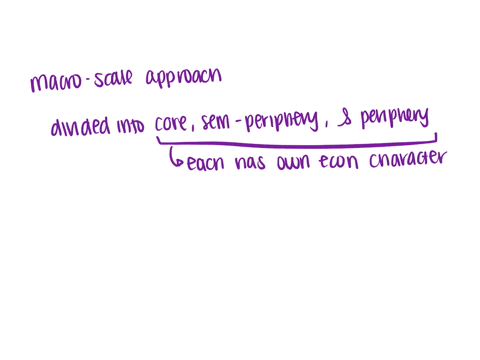 macro-scale approach
divided into core, sem-periphery, & periphery
each has own econ character